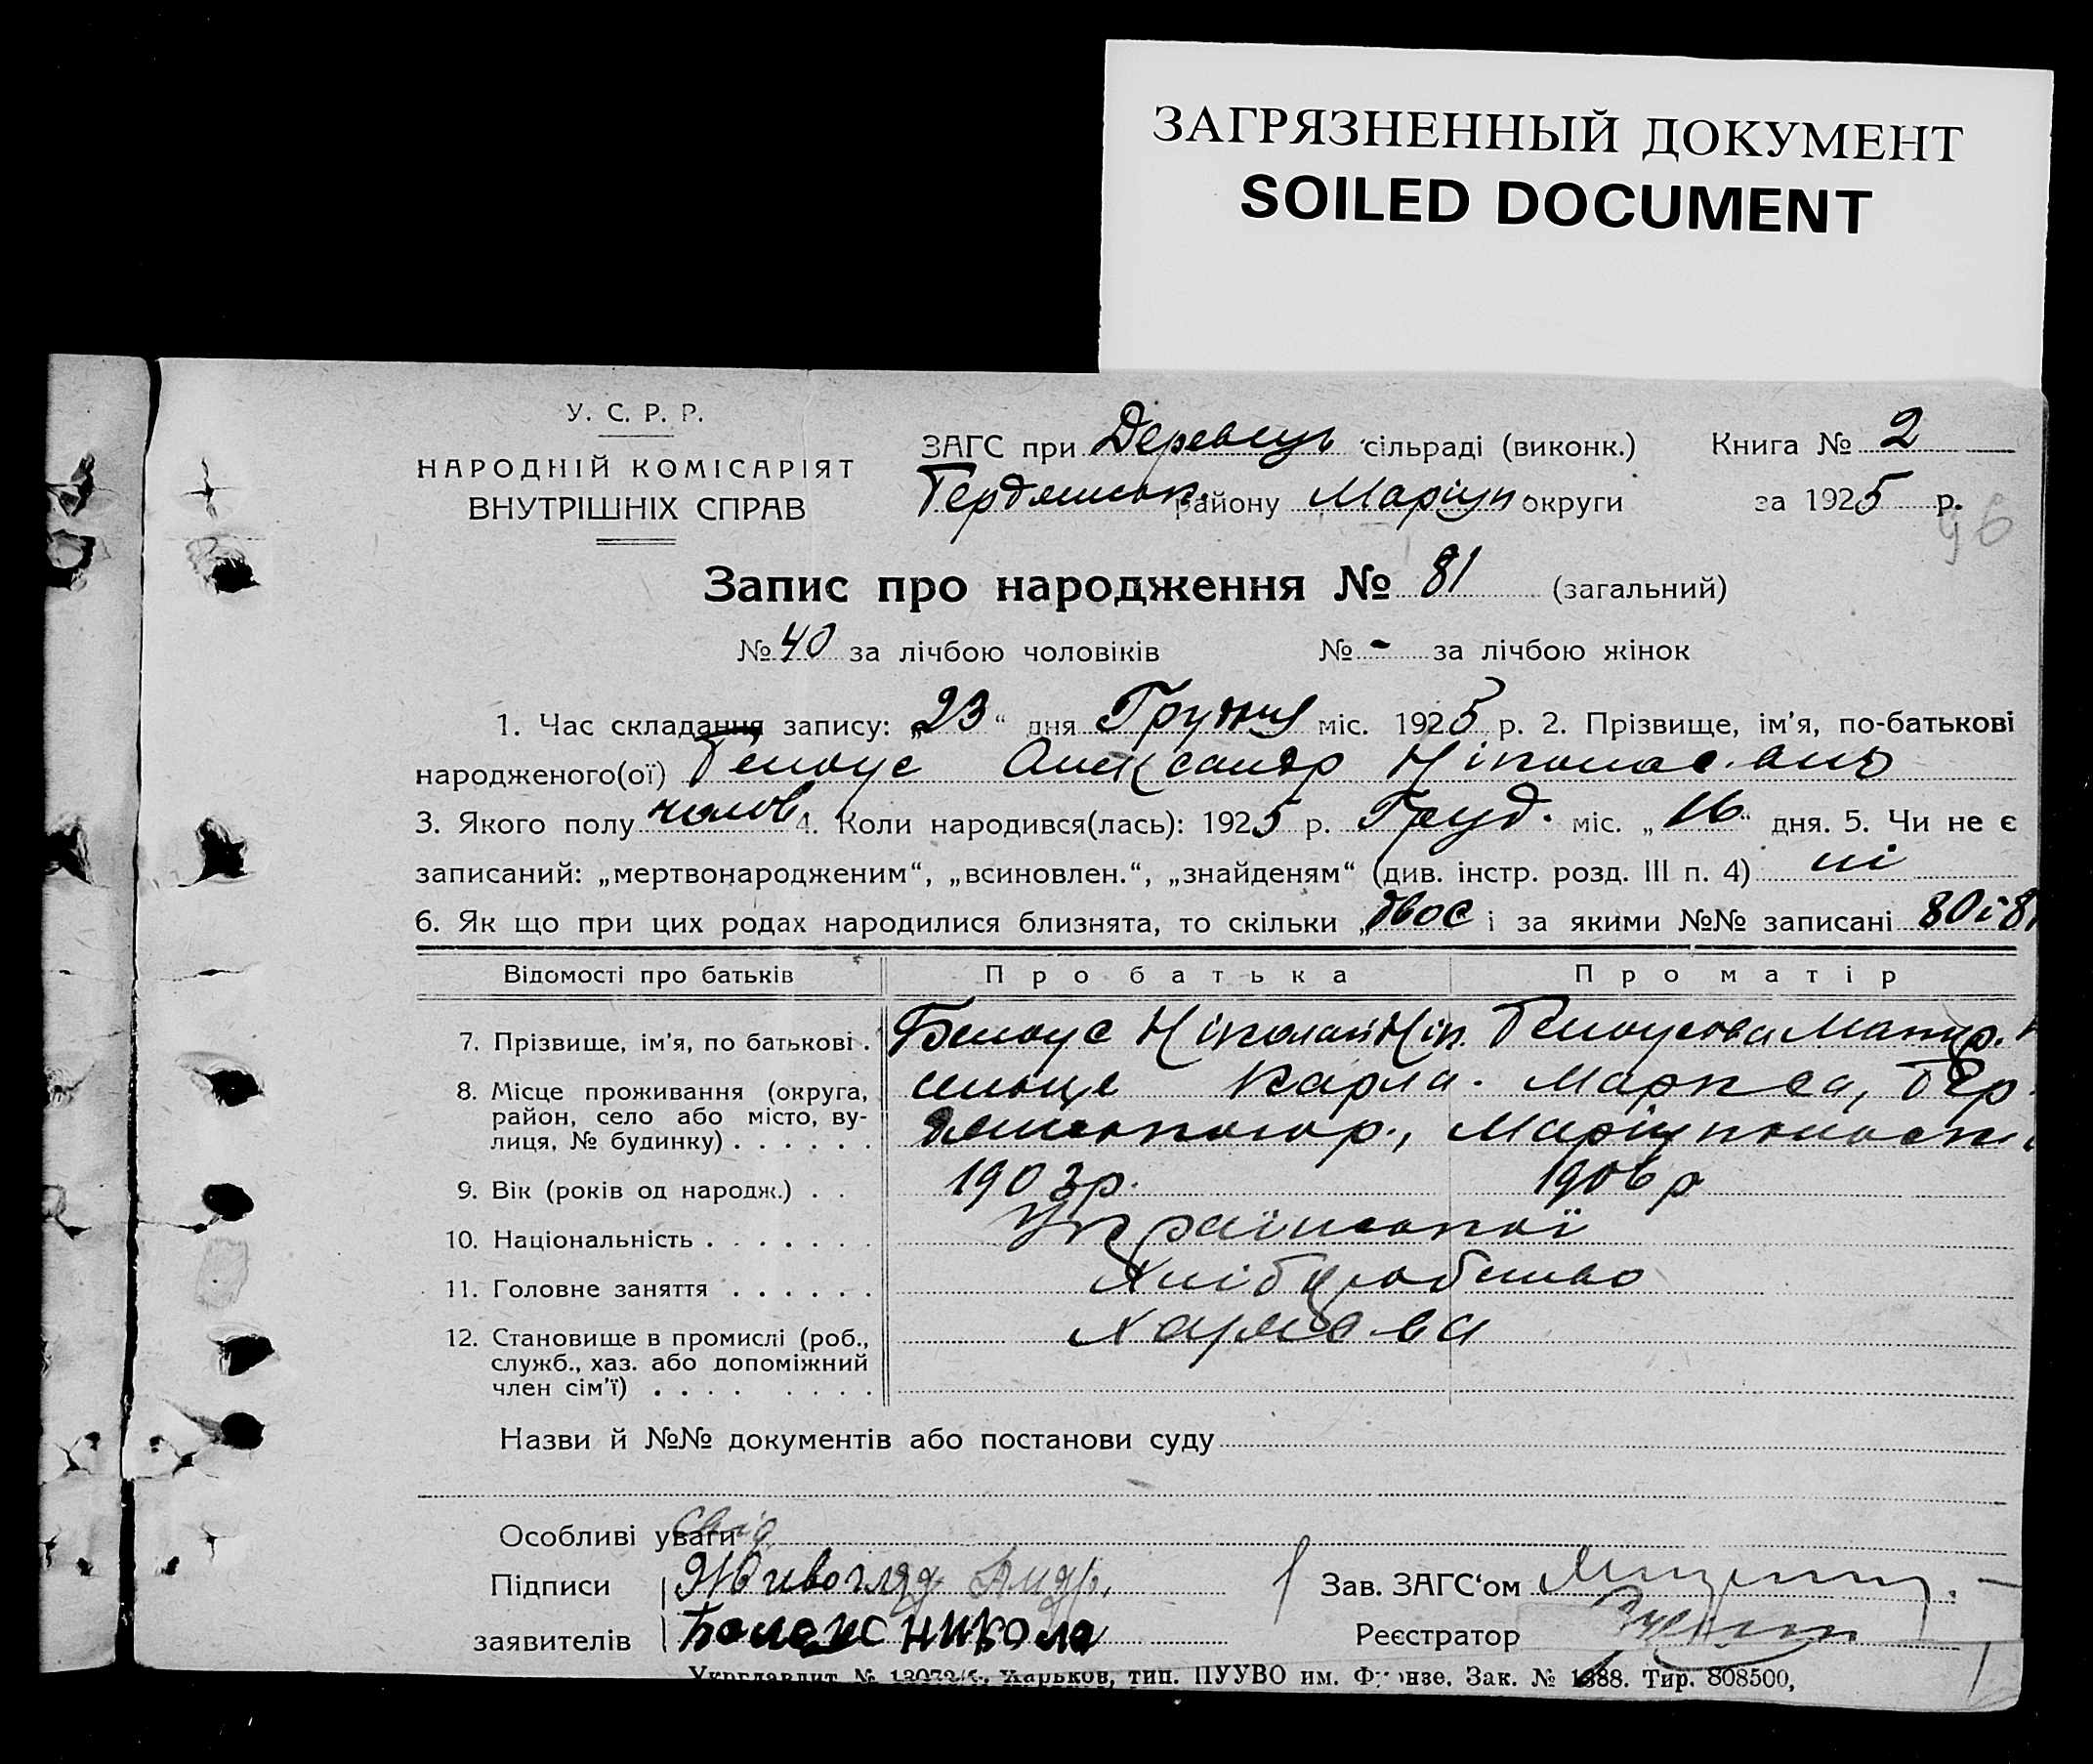 ЗАГРЯЗНЕННЫЙ ДОКУМЕНТ
SOILED DOCUMENT
У. С. Р. Р.
НАРОДНІЙ КОМІСАРІЯТ
ВНУТРІШНІХ СПРАВ
ЗАГС при сільраді (виконк.) Книга № 2
Бердянськ. району Маріуп округи за 1925 р.
96
Запис про народження № 81 (загальний)
№ 40 за лічбою чоловіків № - за лічбою жінок
1. Час складання запису: „23“ дня Грудня міс. 1925 р. 2. Прізвище, ім’я, по-батькові
народженого(ої) Белоус Александр
3. Якого полу чолов 4. Коли народився(лась): 1925 р. Груд. міс. „16“ дня. 5. Чи не є
записаний: „мертвонародженим“, „всиновлен.“, „знайденям“ (див. інстр. розд. III п. 4) ні
6. Як що при цих родах народилися близнята, то скільки „двоє і за якими №№ записані 80 і 81
Відомості про батьків Про батька Про матір
7. Прізвище, ім’я, по батькові . Белоус Ніколай Нік. Белоусова
8. Місце проживання (округа, сельце Карла. Маркса, Бер
район, село або місто, ву-
лиця, № будинку) . . . . . .
9. Вік (років од народж.) . . 1903 р. 1906 р
10. Національність . . . . . . . Української
11. Головне заняття . . . . . . Хліборобство
12. Становище в промислі (роб.,
служб., хаз. або допоміжний
член сім’ї) . . . . . . . .
Назви й №№ документів або постанови суду
Особливі уваги
Підписи Живогляд Андр. Зав. ЗАГС‘ом
заявителів Никола Реєстратор
Укрглавлит № 13073/6. Харьков, тип. ПУУВО им. Фрунзе. Зак. № 1388. Тир. 808500,